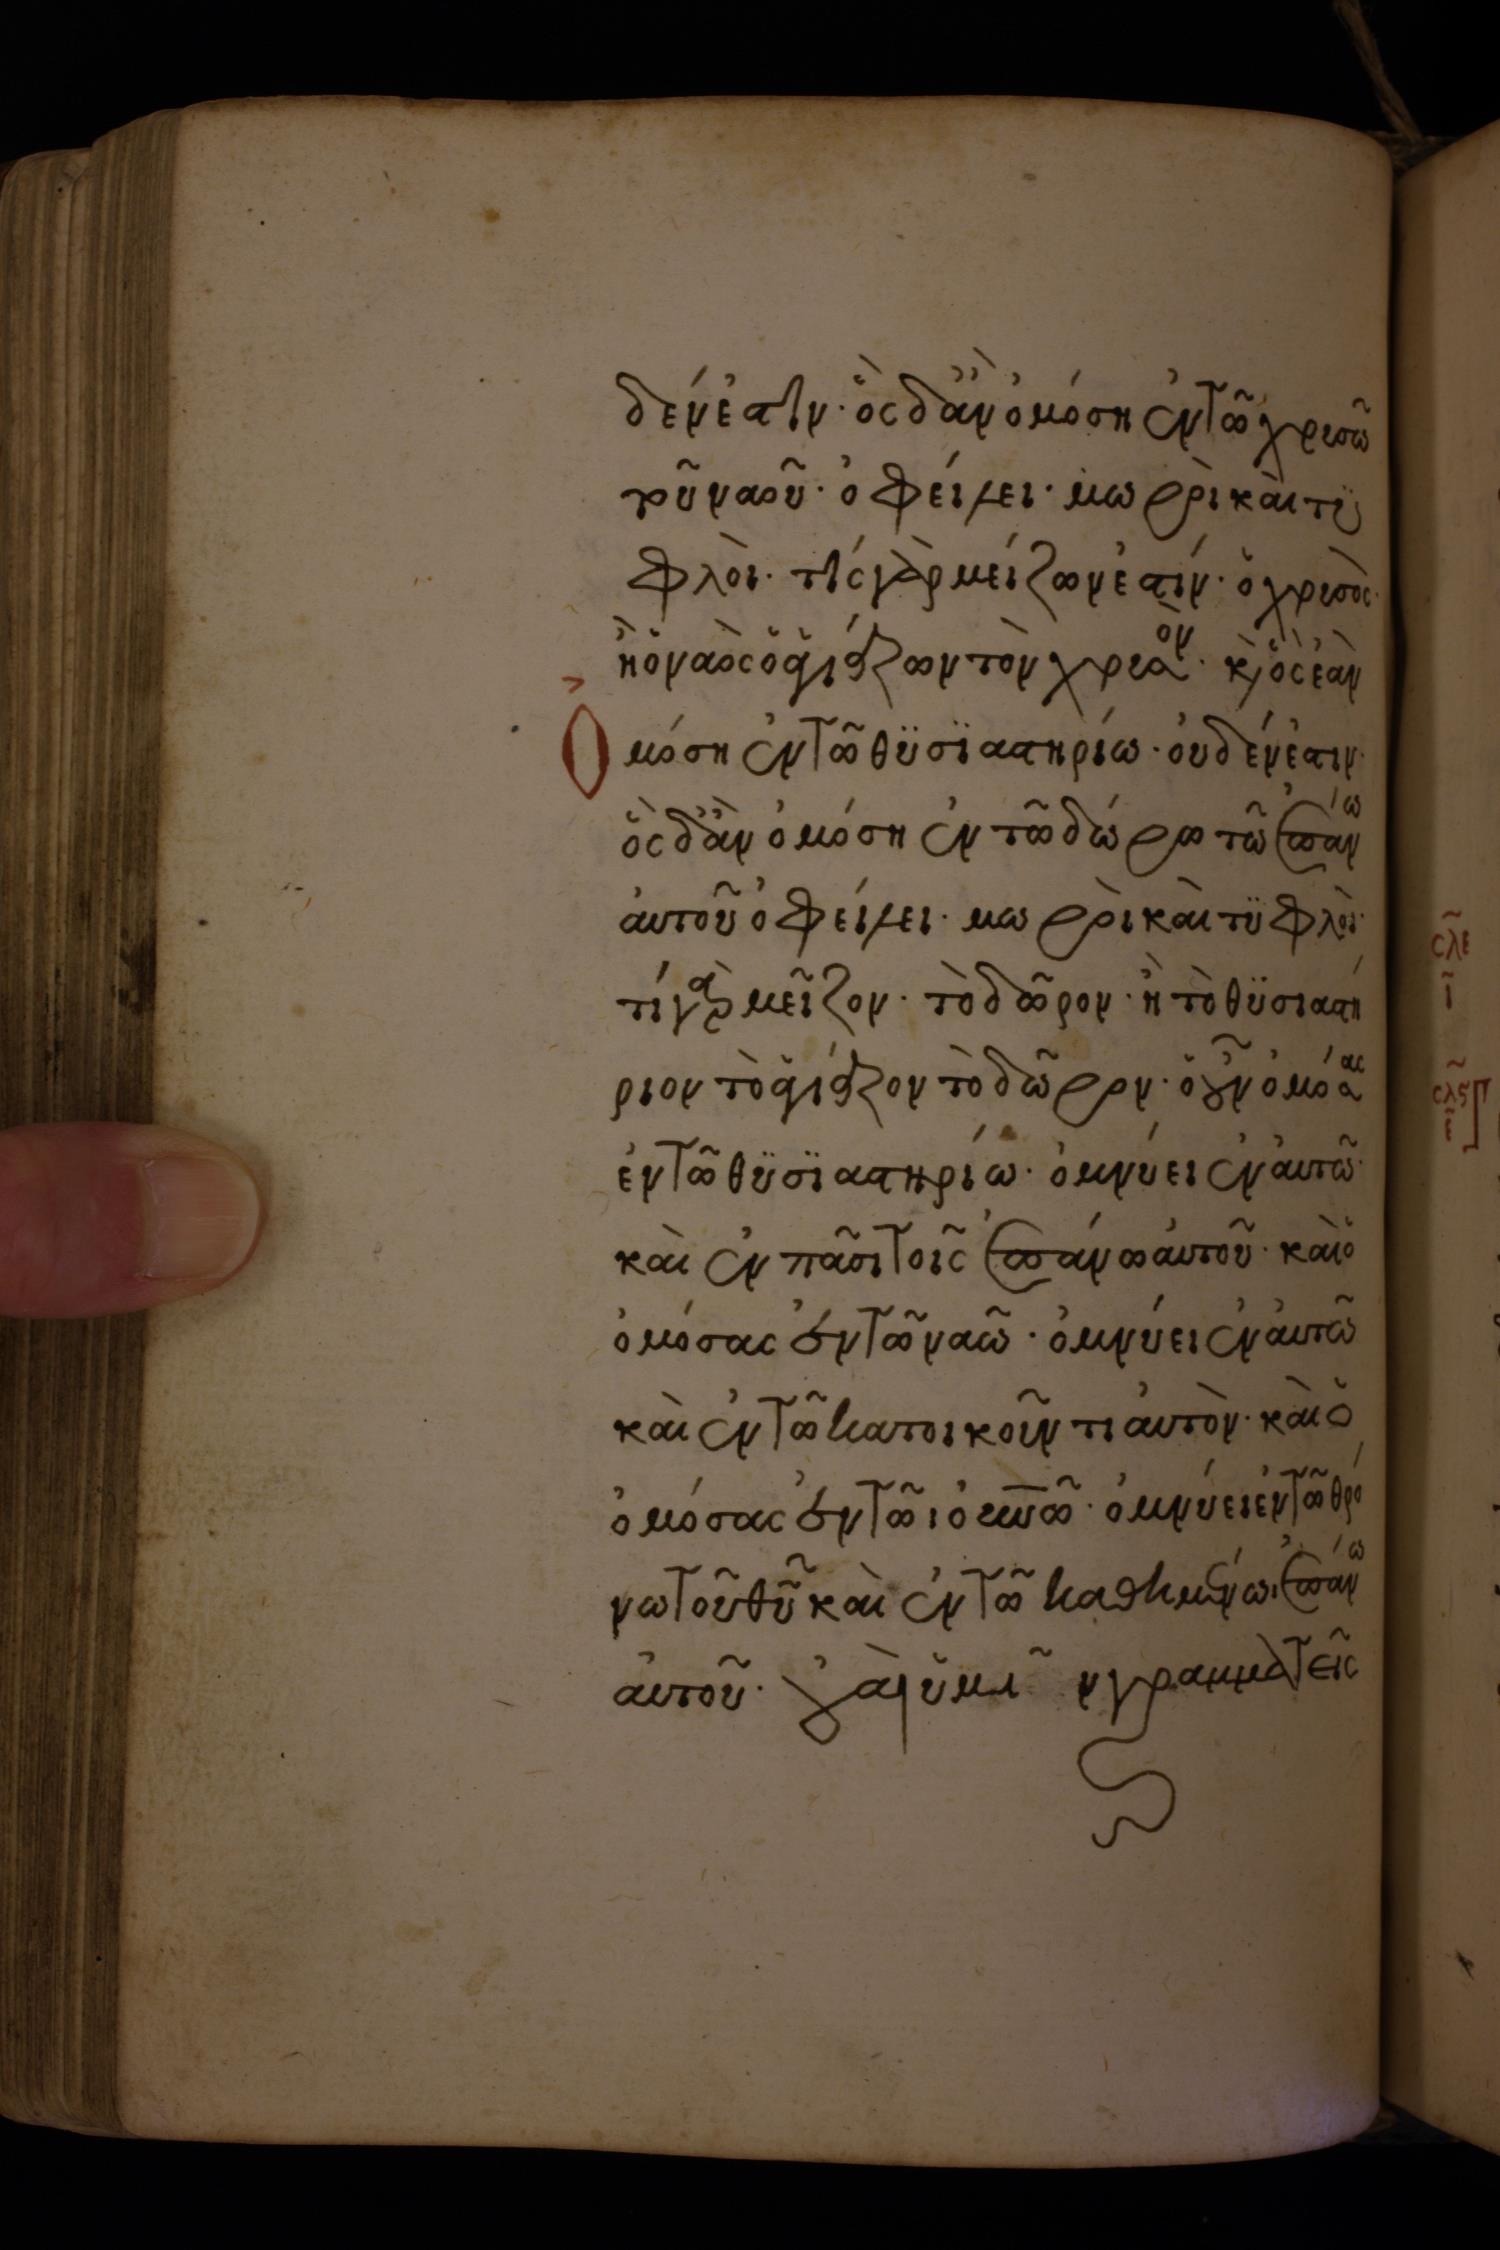 δέν ἐστιν· ὃς δ̓ ἂν ὀμόση ἐν τῶ χρυσῶ
τοῦ ναοῦ· ὀφείλει· μωροὶ καὶ τϋ
φλοὶ· τίς γὰρ μείζων ἐστὶν· ὁ χρυσὸς·
ἢ ὁ ναὸς ὁ ἁγιάζων τὸν χρυσὸν· κὶ ὃς ἐὰν
Ὀμόση ἐν τῶ θϋσϊαστηρίω· οὐδέν ἐστιν·
ὃς δ̓ ἂν ὀμόση ἐν τῶ δώρω τῶ ἐπάνω
αὐτοῦ ὀφείλει· μωροὶ καὶ τϋφλοὶ·
τί γὰρ μεῖζον· τὸ δῶρον· ἢ τὸ θϋσιαστή
ριον τὸ ἁγιάζον τὸ δῶρον· ὁ οὖν ὀμόσας
ἐν τῶ θϋσϊαστηρίω· ὀμνύει ἐν αὐτῶ·
καὶ ἐν πᾶσι τοῖς ἐπάνω αὐτοῦ· καὶ ὁ
ὀμόσας ἐν τῶ ναῶ· ὀμνύει ἐν αὐτῶ
καὶ ἐν τῶ κατοικοῦντι αὐτὸν· καὶ ὁ
ὀμόσας ἐν τῶ οὐνῶ· ὀμνύει ἐν τῶ θρό
νω τοῦ θῦ καὶ ἐν τῶ καθημένω ἐπάνω
αὐτοῦ· οὐαὶ ὑμῖν γραμματεῖς
σλε
ι
σλς
ε